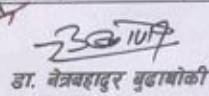 डा. नेत्रबहादुर बुढाथोकी